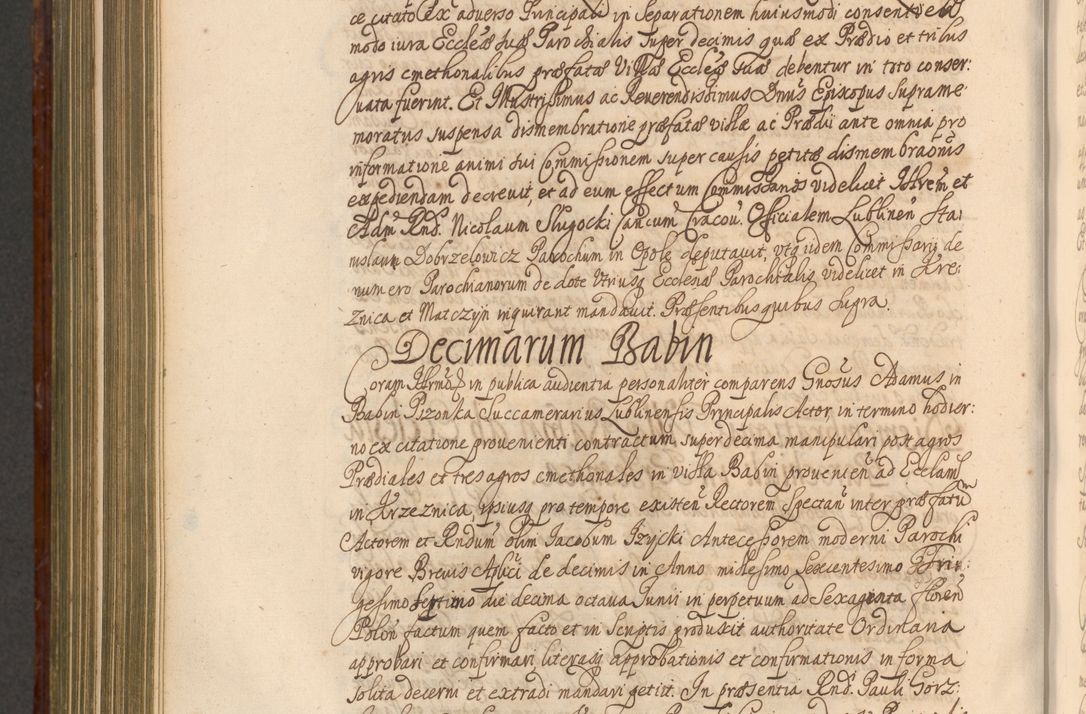 ce citato Ex adverso Principali in separationem huiusmodi consentiend
modo iura Ecclæ suæ Parochialis super decimis quæ ex Prædio et tribus
agris cmethonalibus præfatæ Villæ Ecclæ suæ debentur in toto conser:
vata fuerint. Et Illustrissimus ac Reverendissimus Dnus Episcopus supra me
moratus suspensa dismembratione præfatæ villæ ac Prædii ante omnia pro
informatione animi sui Commissionem super causis petitæ dismembraonis
expediendam decrevit, et ad eum effectum Commissarios videlicet Illrem et
Adm Rnd. Nicolaum Slugocki Cancum Cracou. Officialem Lublinen Sta:
nislaum Dobrzelowicz Parochum in Opole deputavit, utq iidem Commissarij de
numero Parochianorum de dote Utriusq Ecclesiæ Parochialis videlicet in Krze:
znica et Matczyn inquirant mandavit. Præsentibus quibus supra.
Decimarum Babin
Coram Illrmo D in publica audientia personaliter comparens Gnosus Adamus in
Babin Pszonka Succamerarius Lublinensis Principalis Actor in termino hodier:
no ex citatione provenienti contractum super decima manipulari post agros
Prædiales et tres agros cmethonales in villa Babin provenien ad Ecclam
in Krzeznica, ipsiusq pro tempore existen Rectorem spectan inter præfatum
Actorem et Rndum olim Iacobum Izycki Antecessorem moderni Parochi
vigore Brevis Aplici de decimis in Anno millesimo Sexcentesimo Trie:
gesimo septimo die decima octava Iunii in perpetuum ad Sexaginta floren
Polon factum quem facto et in scriptis produxit authoritate Ordinaria
approbari et confirmari, literasq approbationis et confirmationis in forma
solita decerni et extradi mandari petiit. In præsentia Rnd. Pauli Gorz: